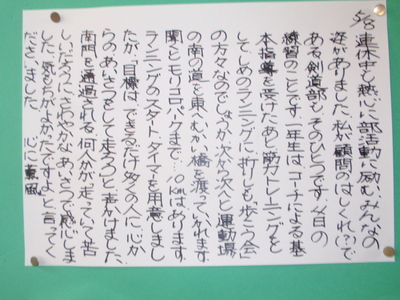 5/8 連休中も熱心に部活動に励むみんなの
姿がありました。私が顧問のはしくれ(?)で
ある剣道部もそのひとつです。今日の
練習のことです。一年生はコーナによる基
本指導を受けたあと筋力トレーニングを
してしめのランニングに。折しも「歩こう会」
の方々なのでしょうか次から次へと運動場
の南の道を東へむかい橋を渡っていかれます。
関とモリコロパークまで 10kmはあります。
ランニングのスタート、タイマーを用意しまし
たが、「目標はできるだけ多くの人に心か
らのあいさつをして走ろう」と声かけました。
南門を通過される何人かが「走っていて苦
しいだろうに、さわやかなあいさつで感心しま
した。気もちがよかったですよ」と言ってく
ださいました。 心に薫風